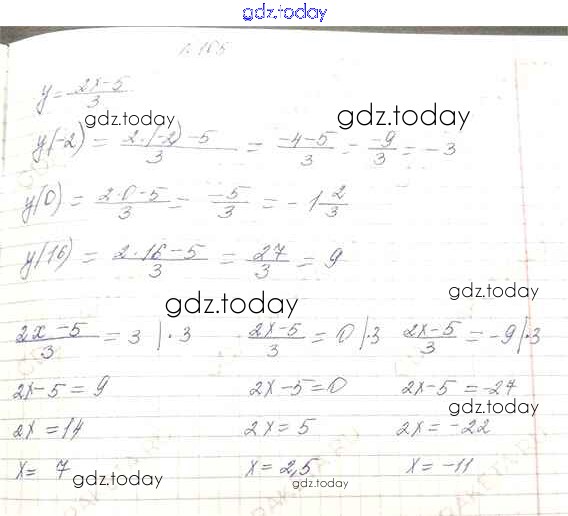 gdz.today
1.165
y = 2x-5/3
gdz.today gdz.today
y(-2) = 2·(-2)-5/3 = -4-5/3 = -9/3 = -3
y(0) = 2·0-5/3 = -5/3 = -1 2/3
y(16) = 2·16-5/3 = 27/3 = 9
gdz.today gdz.today
2x-5/3 = 3 |·3 2x-5/3 = 0 |·3 2x-5/3 = -9 |·3
2x-5 = 9 2x-5=0 2x-5 = -27
gdz.today
2x = 14 2x = 5 2x = -22
x = 7 x = 2,5 x = -11
gdz.today gdz.today